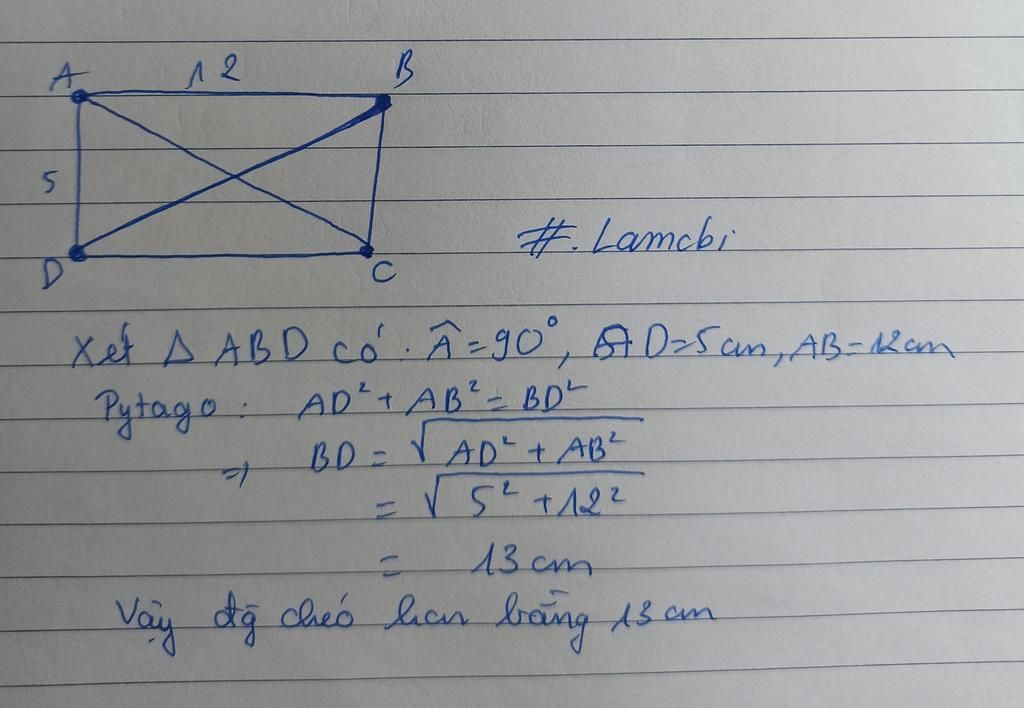 A 12 B
5
D C
#. Lamcbi
Xét Δ ABD có . Â = 90°, AD = 5 cm, AB = 12 cm
Pytago : AD² + AB² = BD²
⇒ BD = √(AD² + AB²)
= √(5² + 12²)
= 13 cm
Vậy đg chéo hcn bằng 13 cm